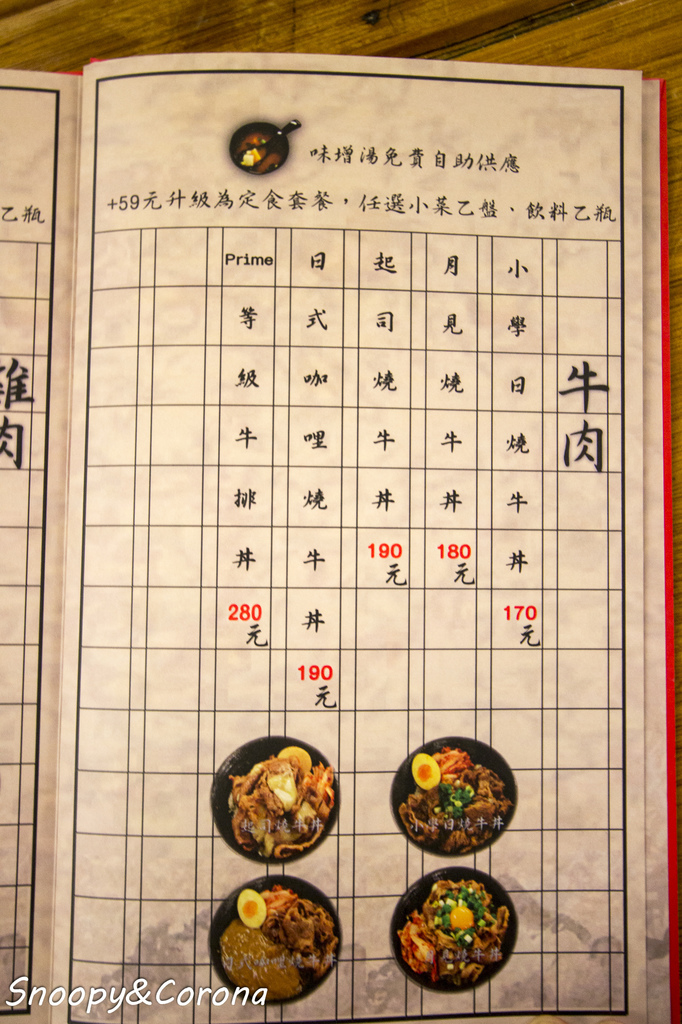 味增湯免費自助供應
+59元升級為定食套餐，任選小菜乙盤、飲料乙瓶
牛肉
小學日燒牛丼 170元
月見燒牛丼 180元
起司燒牛丼 190元
日式咖哩燒牛丼 190元
Prime等級牛排丼 280元
乙瓶
雞肉
起司燒牛丼
小學日燒牛丼
日式咖哩燒牛丼
月見燒牛丼
Snoopy&Corona